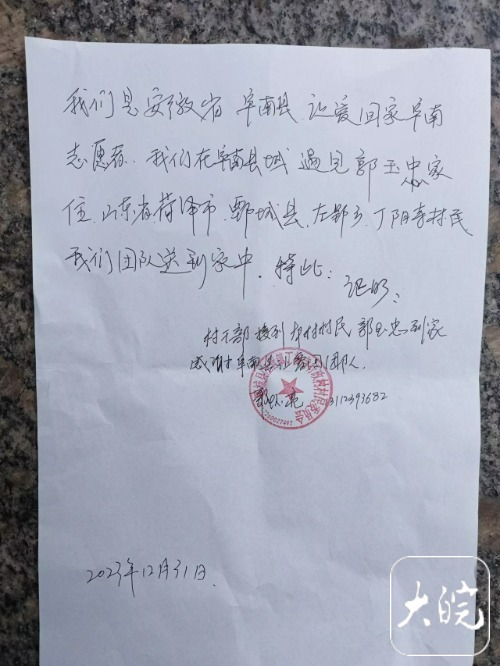 我们是安徽省阜南县让爱回家阜南
志愿者.我们在阜南县城遇见郭玉忠家
住.山东省荷泽市.鄄城县.左鄄乡.丁阴寺村民
我们团队送到家中.特此:
证明:
村干部接到 村村民郭玉忠到家
感谢阜南县让爱回团队人.
3112393682
2023年12月31日.
大皖